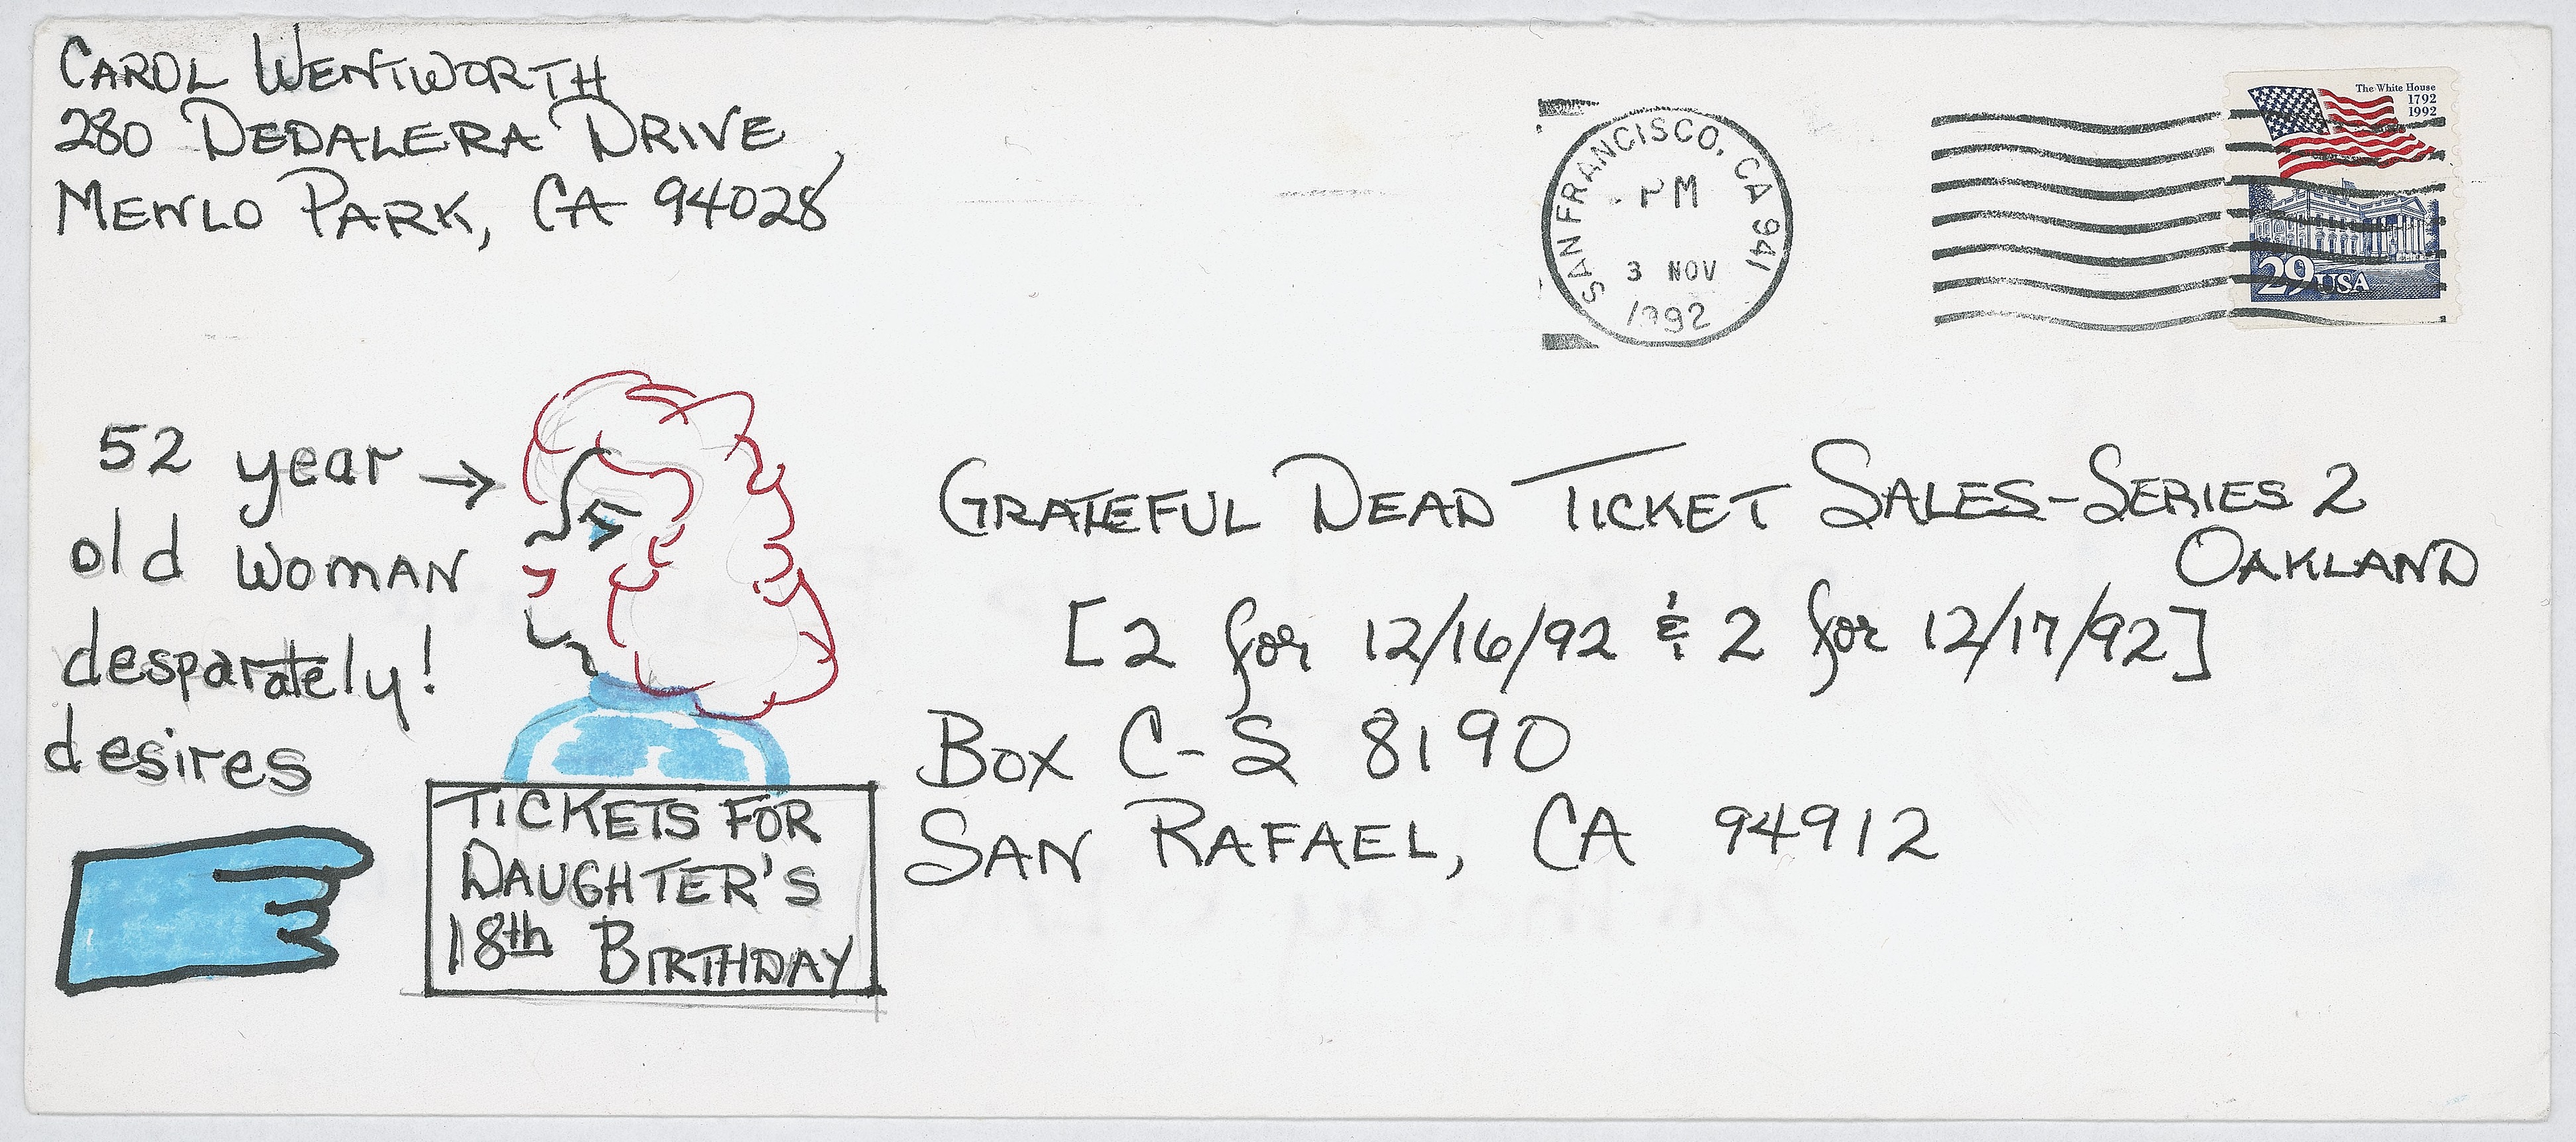 CAROL WENTWORTH
280 DEDALERA DRIVE,
MENLO PARK, CA 94028
SAN FRANCISCO, CA 941
PM
3 NOV
1992
The White House
1792
1992
29 USA
52 year →
old WOMAN
desparately!
desires
TICKETS FOR
DAUGHTER'S
18th BIRTHDAY
GRATEFUL DEAD TICKET SALES-SERIES 2
OAKLAND
[2 for 12/16/92 & 2 for 12/17/92]
BOX C-S 8190
SAN RAFAEL, CA 94912